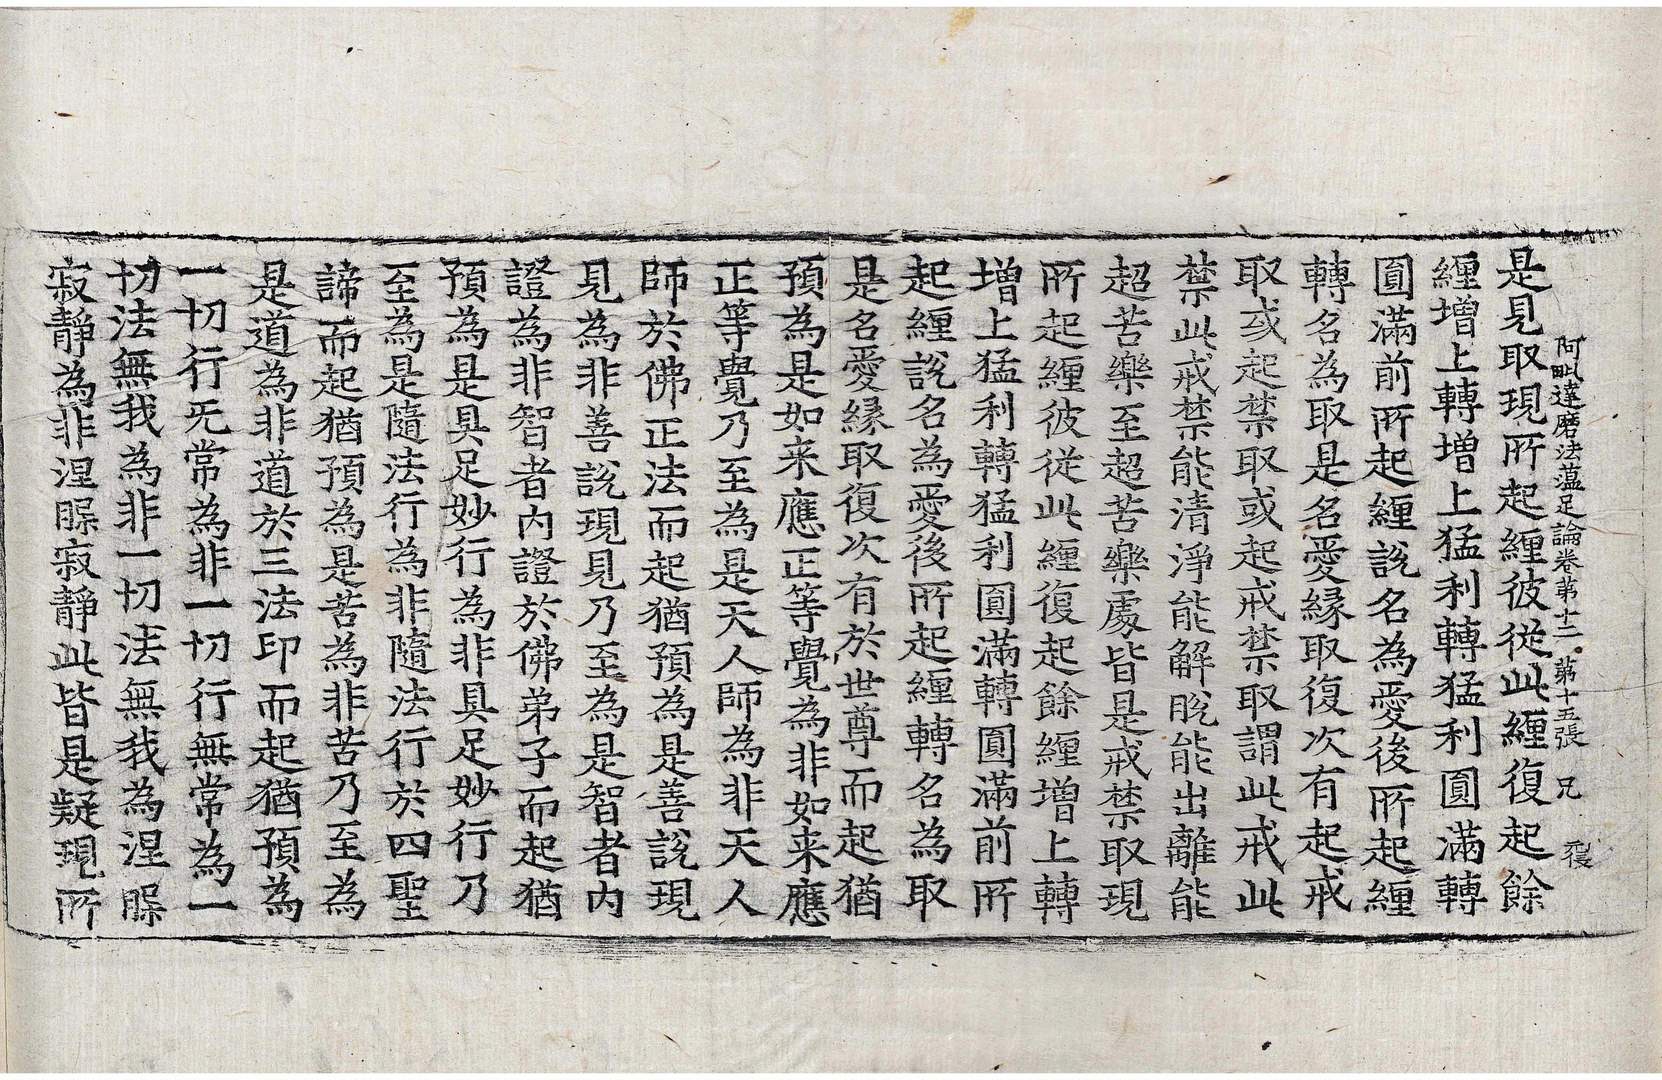 阿毗達磨法蘊足論卷第十二 第十五張 兄
是見取現所起纏彼從此纏復起餘
纏增上轉增上猛利轉猛利圓滿轉
圓滿前所起纏說名為愛後所起纏
轉名為取是名愛緣取復次有起戒
取或起禁取或起戒禁取謂此戒此
禁此戒禁能清淨能解脫能出離能
超苦樂至超苦樂處皆是戒禁取現
所起纏彼從此纏復起餘纏增上轉
增上猛利轉猛利圓滿轉圓滿前所
起纏說名為愛後所起纏轉名為取
是名愛緣取復次有於世尊而起猶
預為是如来應正等覺為非如来應
正等覺乃至為是天人師為非天人
師於佛正法而起猶預為是善說現
見為非善說現見乃至為是智者內
證為非智者內證於佛弟子而起猶
預為是具足妙行為非具足妙行乃
至為是隨法行為非隨法行於四聖
諦而起猶預為是苦為非苦乃至為
是道為非道於三法印而起猶預為
一切行无常為非一切行無常為一
切法無我為非一切法無我為涅槃
寂靜為非涅槃寂靜此皆是疑現所